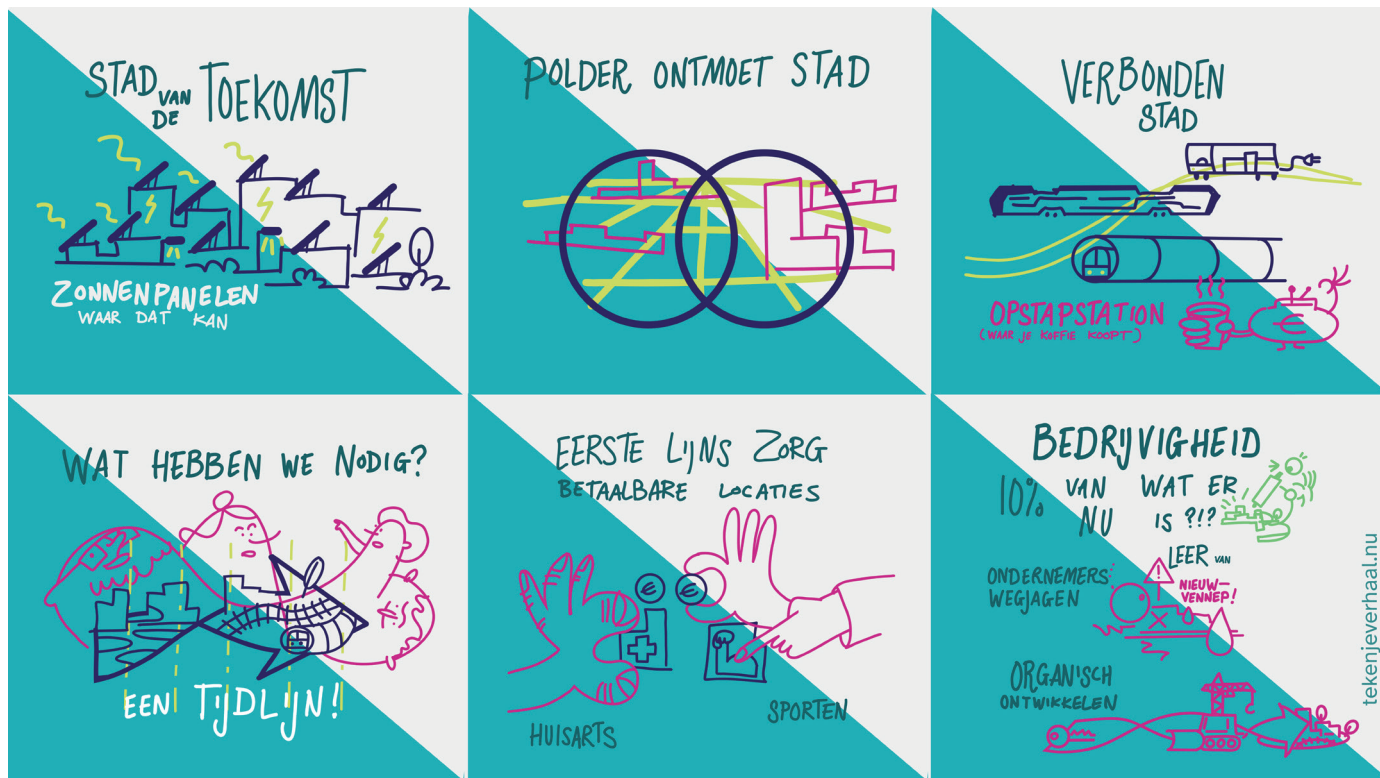 STAD VAN DE TOEKOMST
ZONNENPANELEN
WAAR DAT KAN
POLDER ONTMOET STAD
VERBONDEN
STAD
OPSTAPSTATION
(WAAR JE KOFFIE KOOPT)
WAT HEBBEN WE NODIG?
EEN TIJDLIJN!
EERSTE LIJNS ZORG
BETAALBARE LOCATIES
€ €
HUISARTS
SPORTEN
BEDRIJVIGHEID
10% VAN NU WAT ER IS ?!?
LEER VAN
NIEUW-
VENNEP!
ONDERNEMERS
WEGJAGEN
ORGANISCH
ONTWIKKELEN
tekenjeverhaal.nu